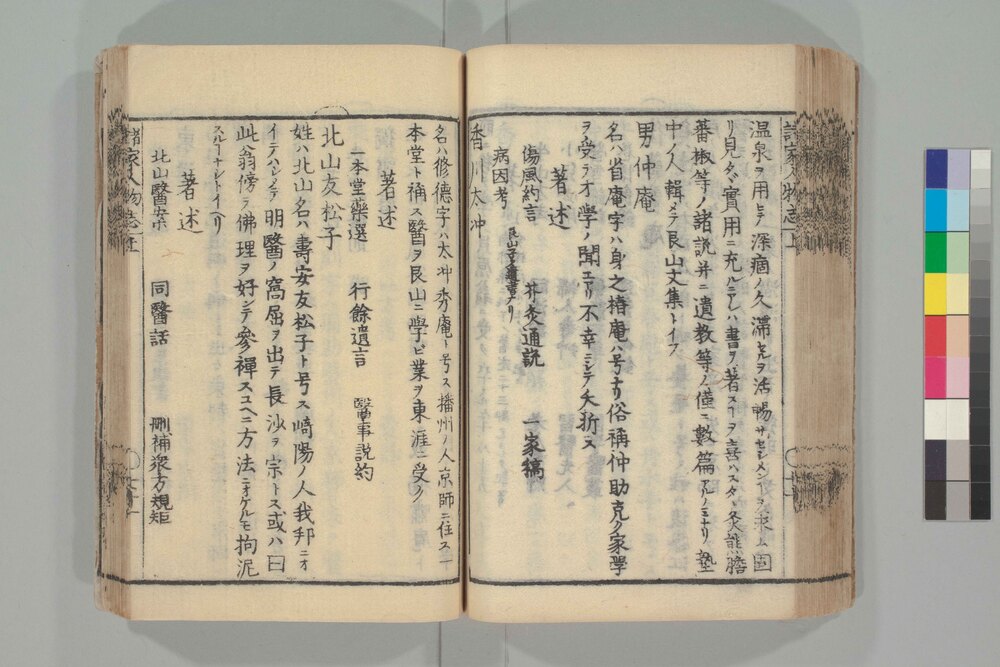 諸家人物志上
温泉ヲ用ヒテ深痼久滯ヲ活暢サセシメンヿヲ求ム因
リ見タゞ實用ニ充ルニアハ書ヲ著スヿヲ喜ハスタゞ灸熊膽
蕃椒等ノ諸説并ニ遺教等ノ僅ニ數篇アルノミナリ塾
中ノ人輯メテ艮山文集トイフ
男仲庵
名ハ省庵字ハ身之椿庵ハ号ナリ俗稱仲助克ク家學
ヲ受ラオ學ノ聞エアリ不幸ニシテ夭折ス
著述
傷風約言 井灸通説 一家稿
病因考 艮山子ノ遺書ナリ
香川太冲
名ハ修德字ハ太冲秀庵ト号ス播州ノ人京師ニ住ス一
本堂ト稱ス醫ヲ艮山ニ學ビ業ヲ東涯ニ受ク
著述
一本堂藥選 行餘遺言 醫事説約
北山友松子
姓ハ北山名ハ壽安友松子ト号ス崎陽ノ人我邦ニオ
イテハシメテ明醫ノ窩屈ヲ出テ長沙ヲ宗トス或ハ曰
此翁傍ラ佛理ヲ好ンテ參禪スユヘニ方法ニオケルモ拘泥
スルヿナシトイヘリ
著述
北山醫案 同醫話 刪補衆方規矩
諸家人物志上